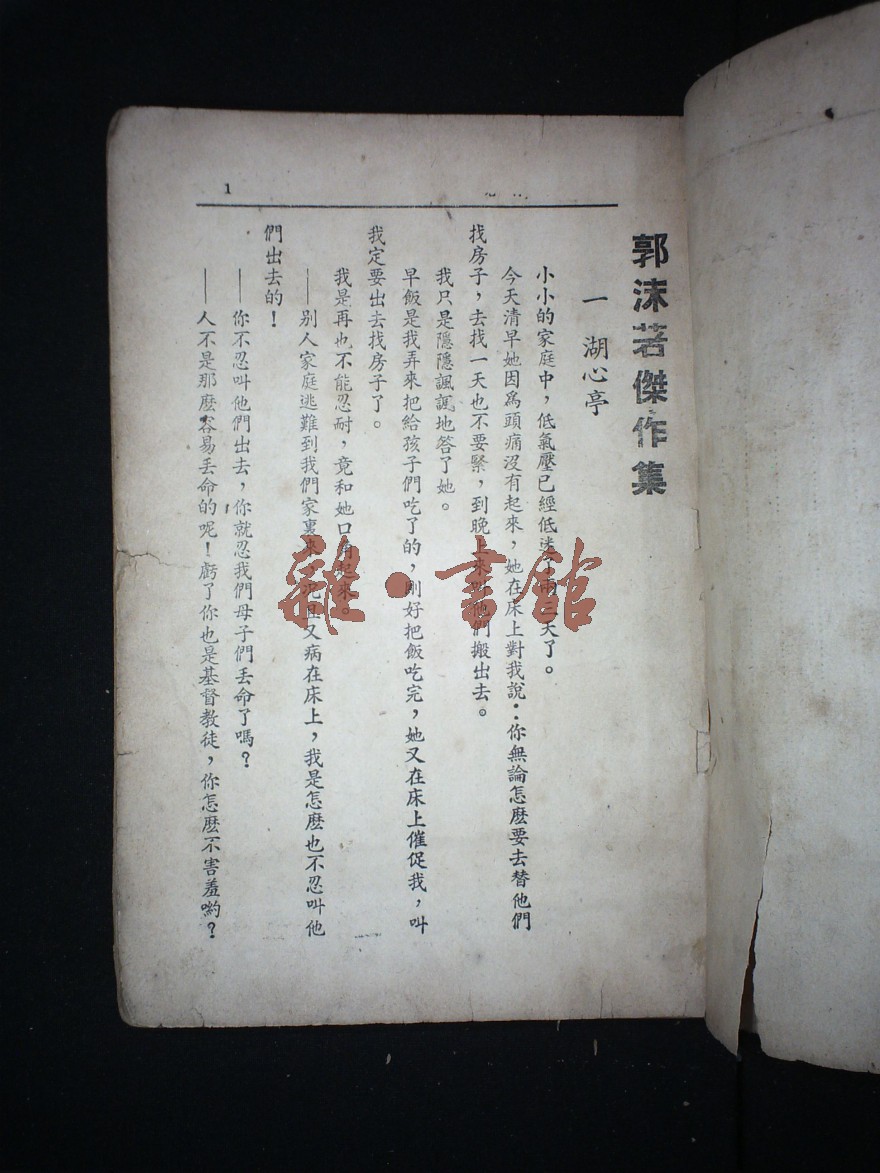 郭沫若傑作集
一 湖心亭
小小的家庭中，低氣壓已經低迷了兩三天了。
今天清早她因爲頭痛沒有起來，她在床上對我說：你無論怎麼要去替他們
找房子，去找一天也不要緊，到晚上來叫他們搬出去。
我只是隱隱諷諷地答了她。
早飯是我弄來把給孩子們吃了的，剛好把飯吃完，她又在床上催促我，叫
我定要出去找房子了。
我是再也不能忍耐，竟和她口角起來。
——別人家庭逃難到我們家裏來，況且又病在床上，我是怎麼也不忍叫他
們出去的！
——你不忍叫他們出去，你就忍我們母子們丟命了嗎？
——人不是那麼容易丟命的呢！虧了你也是基督教徒，你怎麼不害羞喲？
1
雜·書館